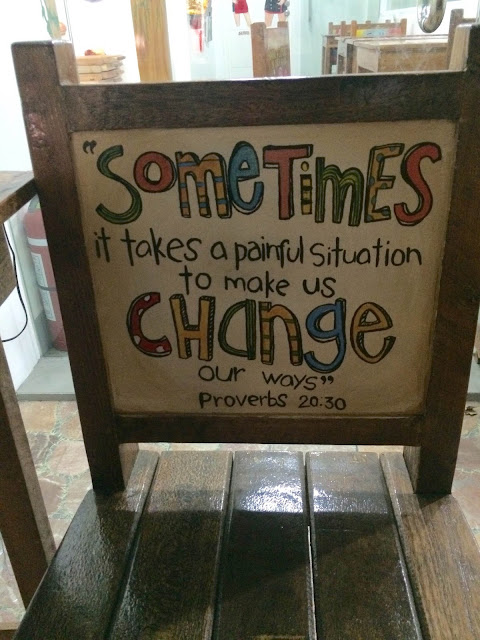 "SOmeTimES
it takes a painful situation
to make us
CHange
our ways"
Proverbs 20:30